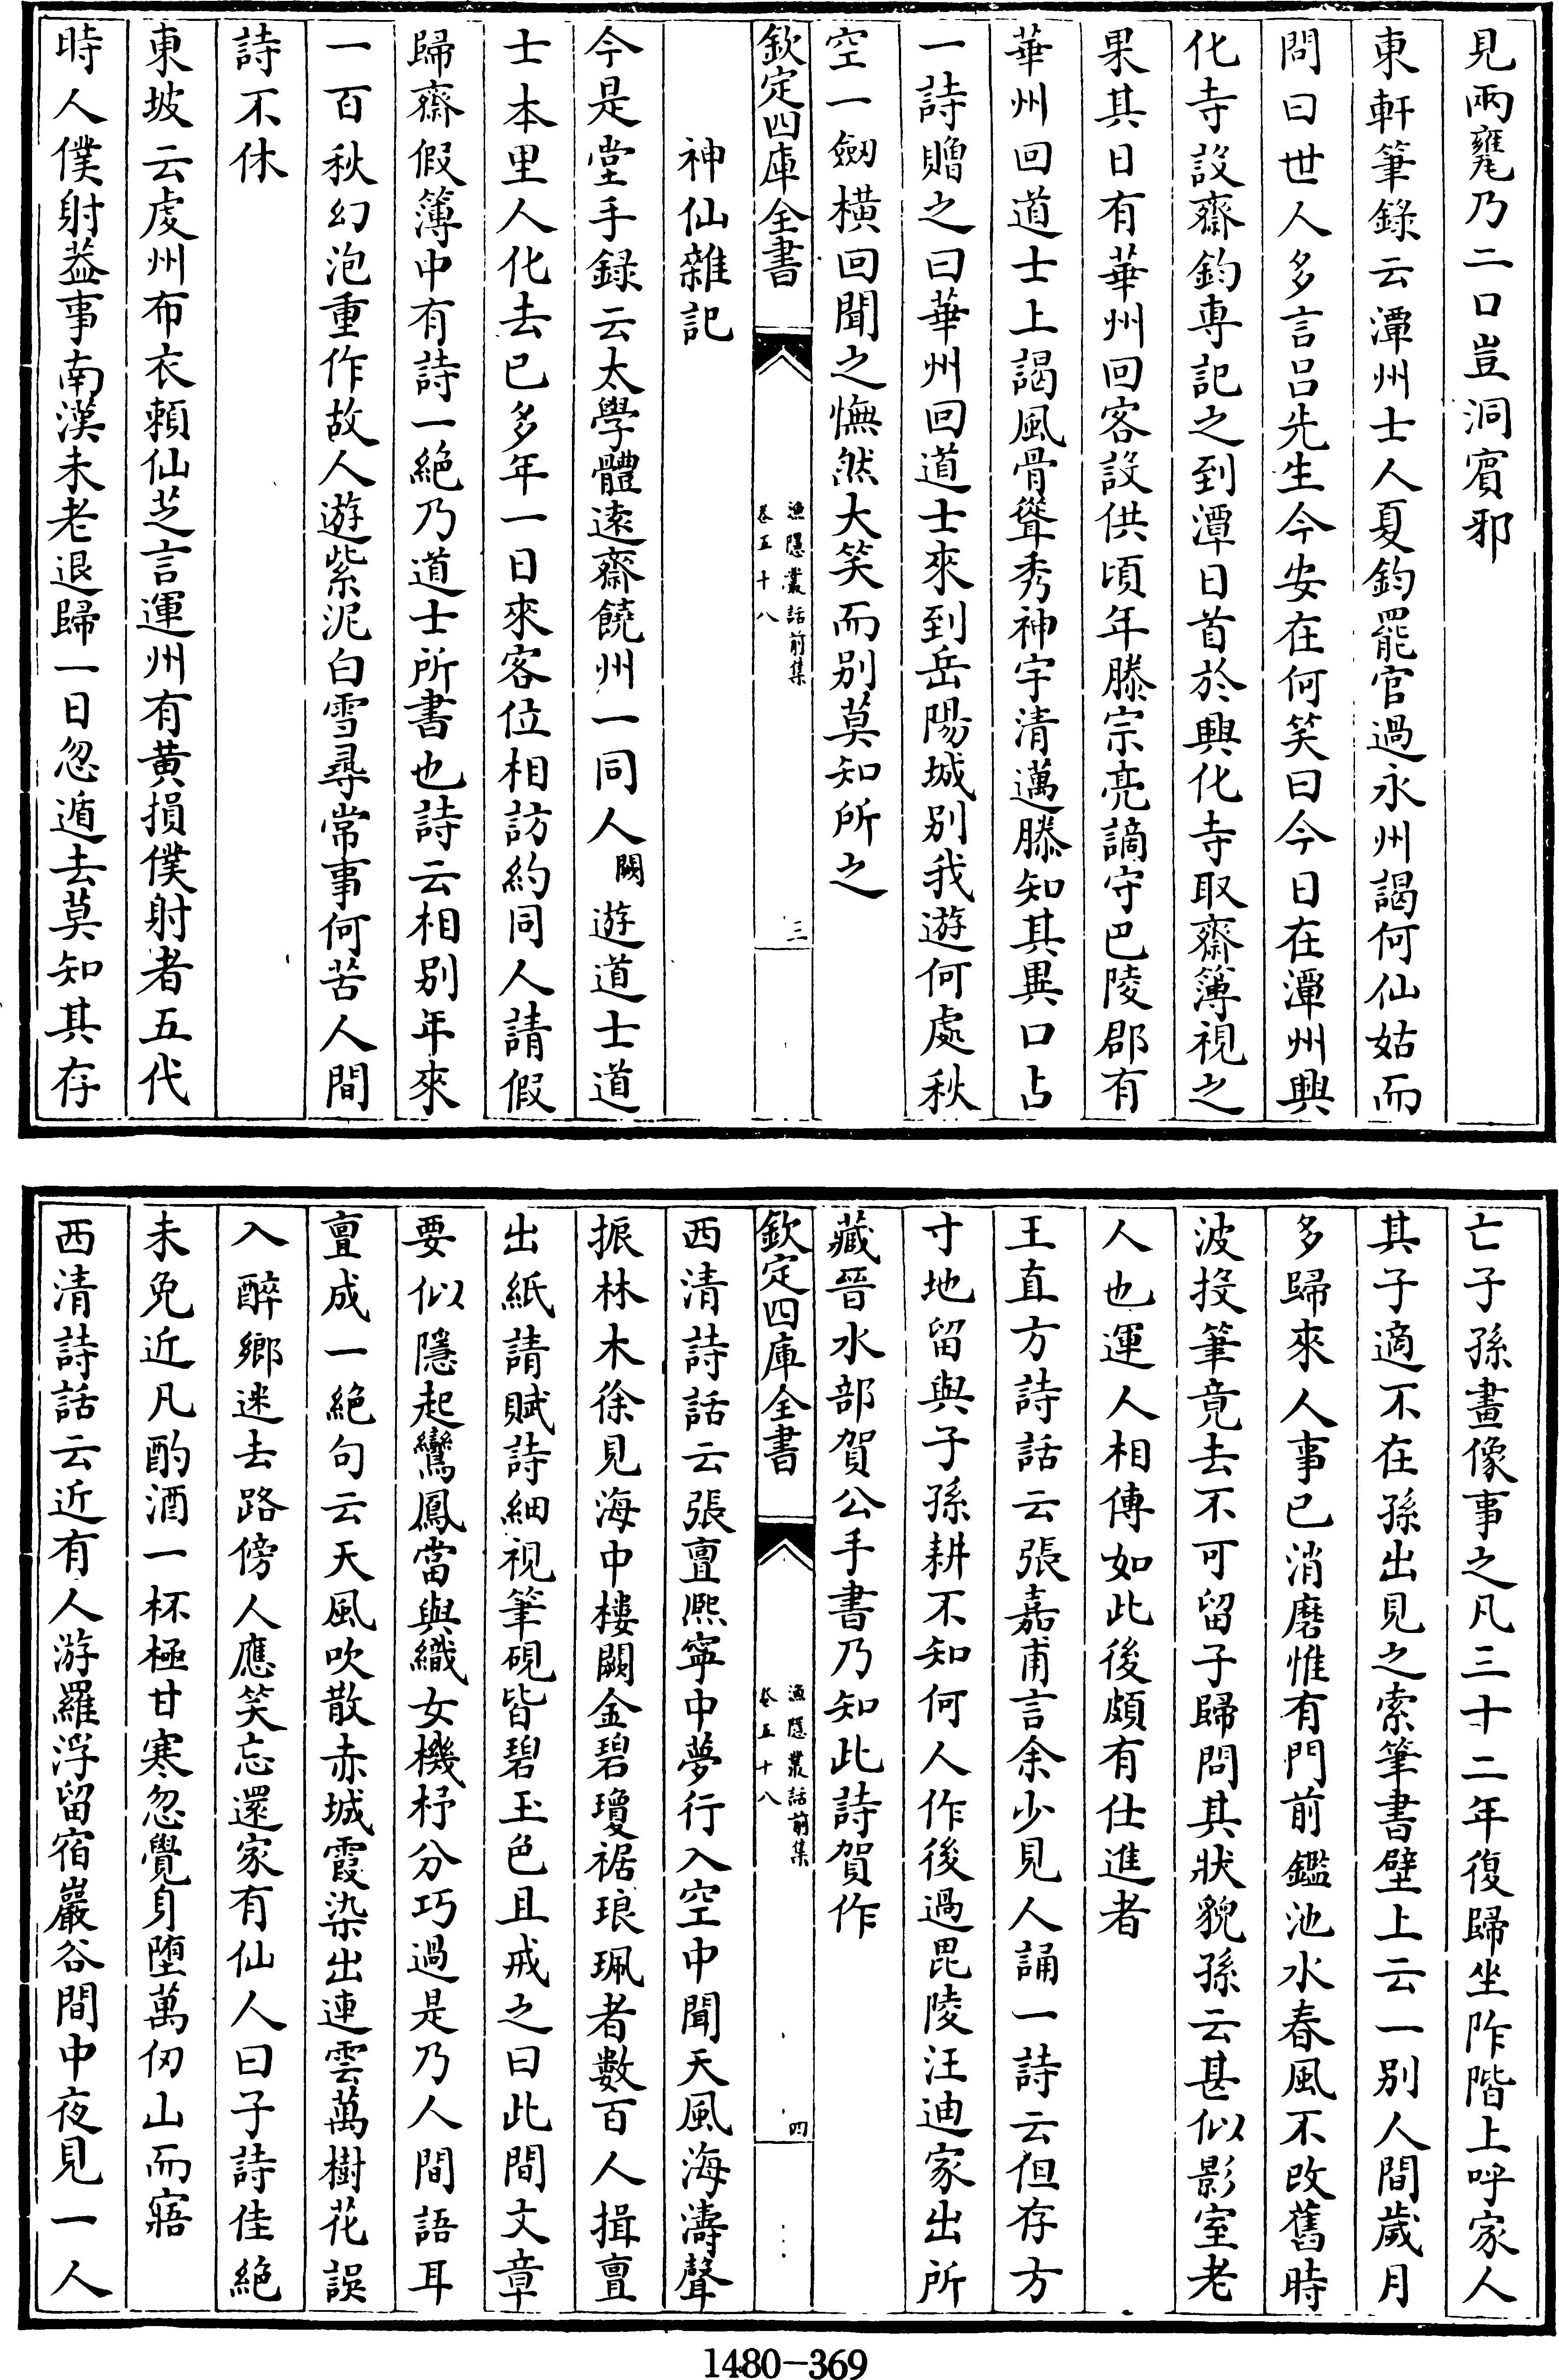 見兩甕乃二口豈洞賓邪
東軒筆錄云潭州士人夏鈞罷官過永州謁何仙姑而
問曰世人多言吕先生今安在何笑曰今日在潭州興
化寺設齋鈞專記之到潭日首於興化寺取齋簿視之
果其日有華州回客設供頃年滕宗亮謫守巴陵郡有
華州回道士上謁風骨聳秀神宇清邁滕知其異口占
一詩贈之曰華州回道士來到岳陽城别我遊何處秋
空一劒橫回聞之憮然大笑而别莫知所之
欽定四庫全書
漁隱叢話前集
卷五十八
三
神仙雜記
今是堂手録云太學體逺齋饒州一同人闕遊道士道
士本里人化去已多年一日來客位相訪約同人請假
歸齋假簿中有詩一絶乃道士所書也詩云相别年來
一百秋幻泡重作故人遊紫泥白雪尋常事何苦人間
詩不休
東坡云虔州布衣賴仙芝言運州有黄損僕射者五代
時人僕射葢事南漢未老退歸一日忽遁去莫知其存
亡子孫畫像事之凡三十二年復歸坐阼階上呼家人
其子適不在孫出見之索筆書壁上云一别人間歲月
多歸來人事已消磨惟有門前鑑池水春風不改舊時
波投筆竟去不可留子歸問其狀貌孫云甚似影室老
人也運人相傳如此後頗有仕進者
王直方詩話云張嘉甫言余少見人誦一詩云但存方
寸地留與子孫耕不知何人作後過毘陵汪迪家出所
藏晉水部賀公手書乃知此詩賀作
欽定四庫全書
漁隱叢話前集
卷五十八
四
西清詩話云張亶熈寧中夢行入空中聞天風海濤聲
振林木徐見海中樓闕金碧瓊裾琅珮者數百人揖亶
出紙請賦詩細視筆硯皆碧玉色且戒之曰此間文章
要似隱起鸞鳳當與織女機杼分巧過是乃人間語耳
亶成一絶句云天風吹散赤城霞染出連雲萬樹花誤
入醉鄉迷去路傍人應笑忘還家有仙人曰子詩佳絶
未免近凡酌酒一杯極甘寒忽覺身墮萬仞山而寤
西清詩話云近有人游羅浮留宿巖谷間中夜見一人
1480-369